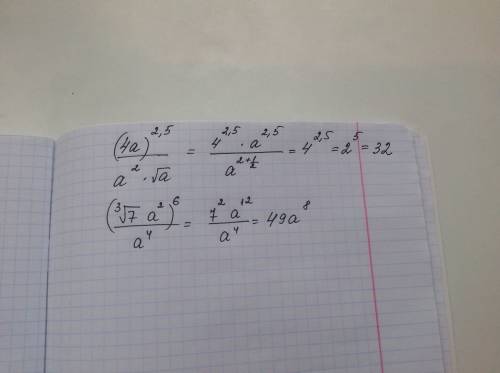 (4a)^2,5 / a^2 · √a = 4^2,5 · a^2,5 / a^2+1/2 = 4^2,5 = 2^5 = 32
(∛7 a^2)^6 / a^4 = 7^2 a^12 / a^4 = 49a^8